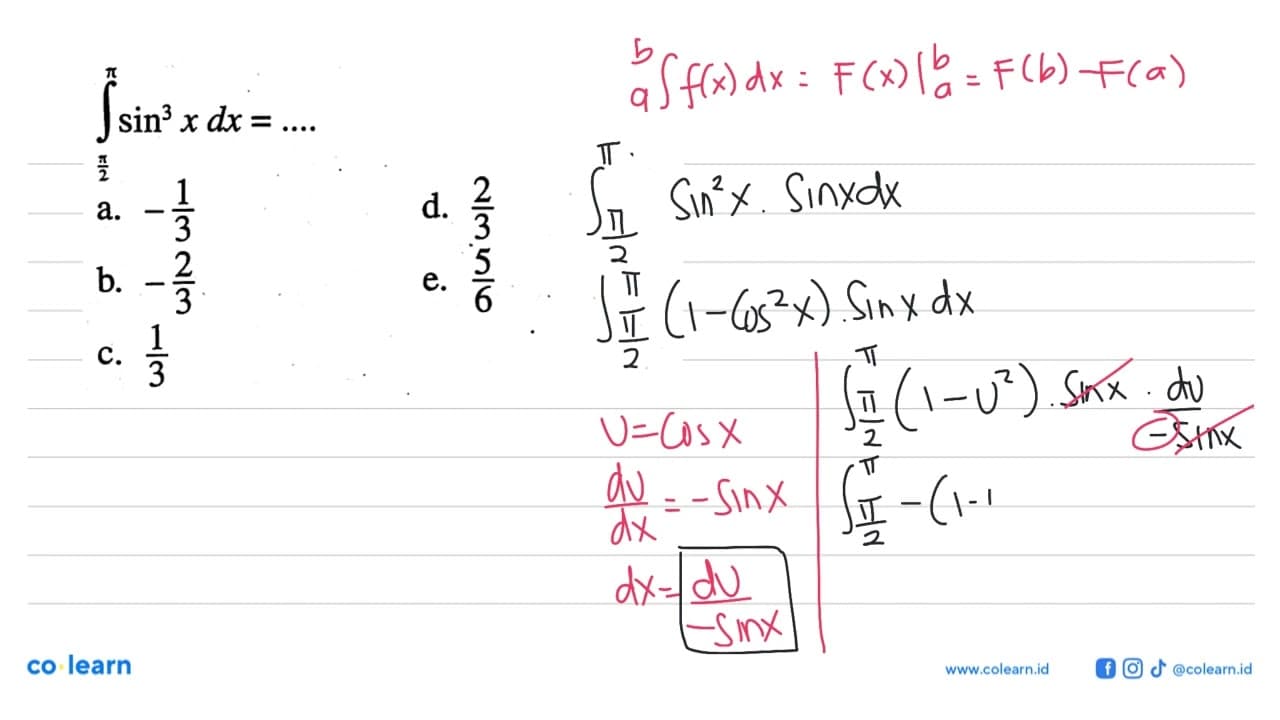 ∫ π/2 π sin³ x dx = ....
a. -1/3
b. -2/3
c. 1/3
d. 2/3
e. 5/6
a∫b f(x) dx = F(x)|ᵇₐ = F(b) - F(a)
∫ π/2 π Sin²x . Sinxdx
∫ π/2 π (1-Cos²x).Sinx dx
U=Cosx
du/dx = -Sinx
dx= du/-Sinx
∫ π/2 π (1-U²).Sinx . du/-Sinx
∫ π/2 π -(1-
co learn
www.colearn.id
@colearn.id